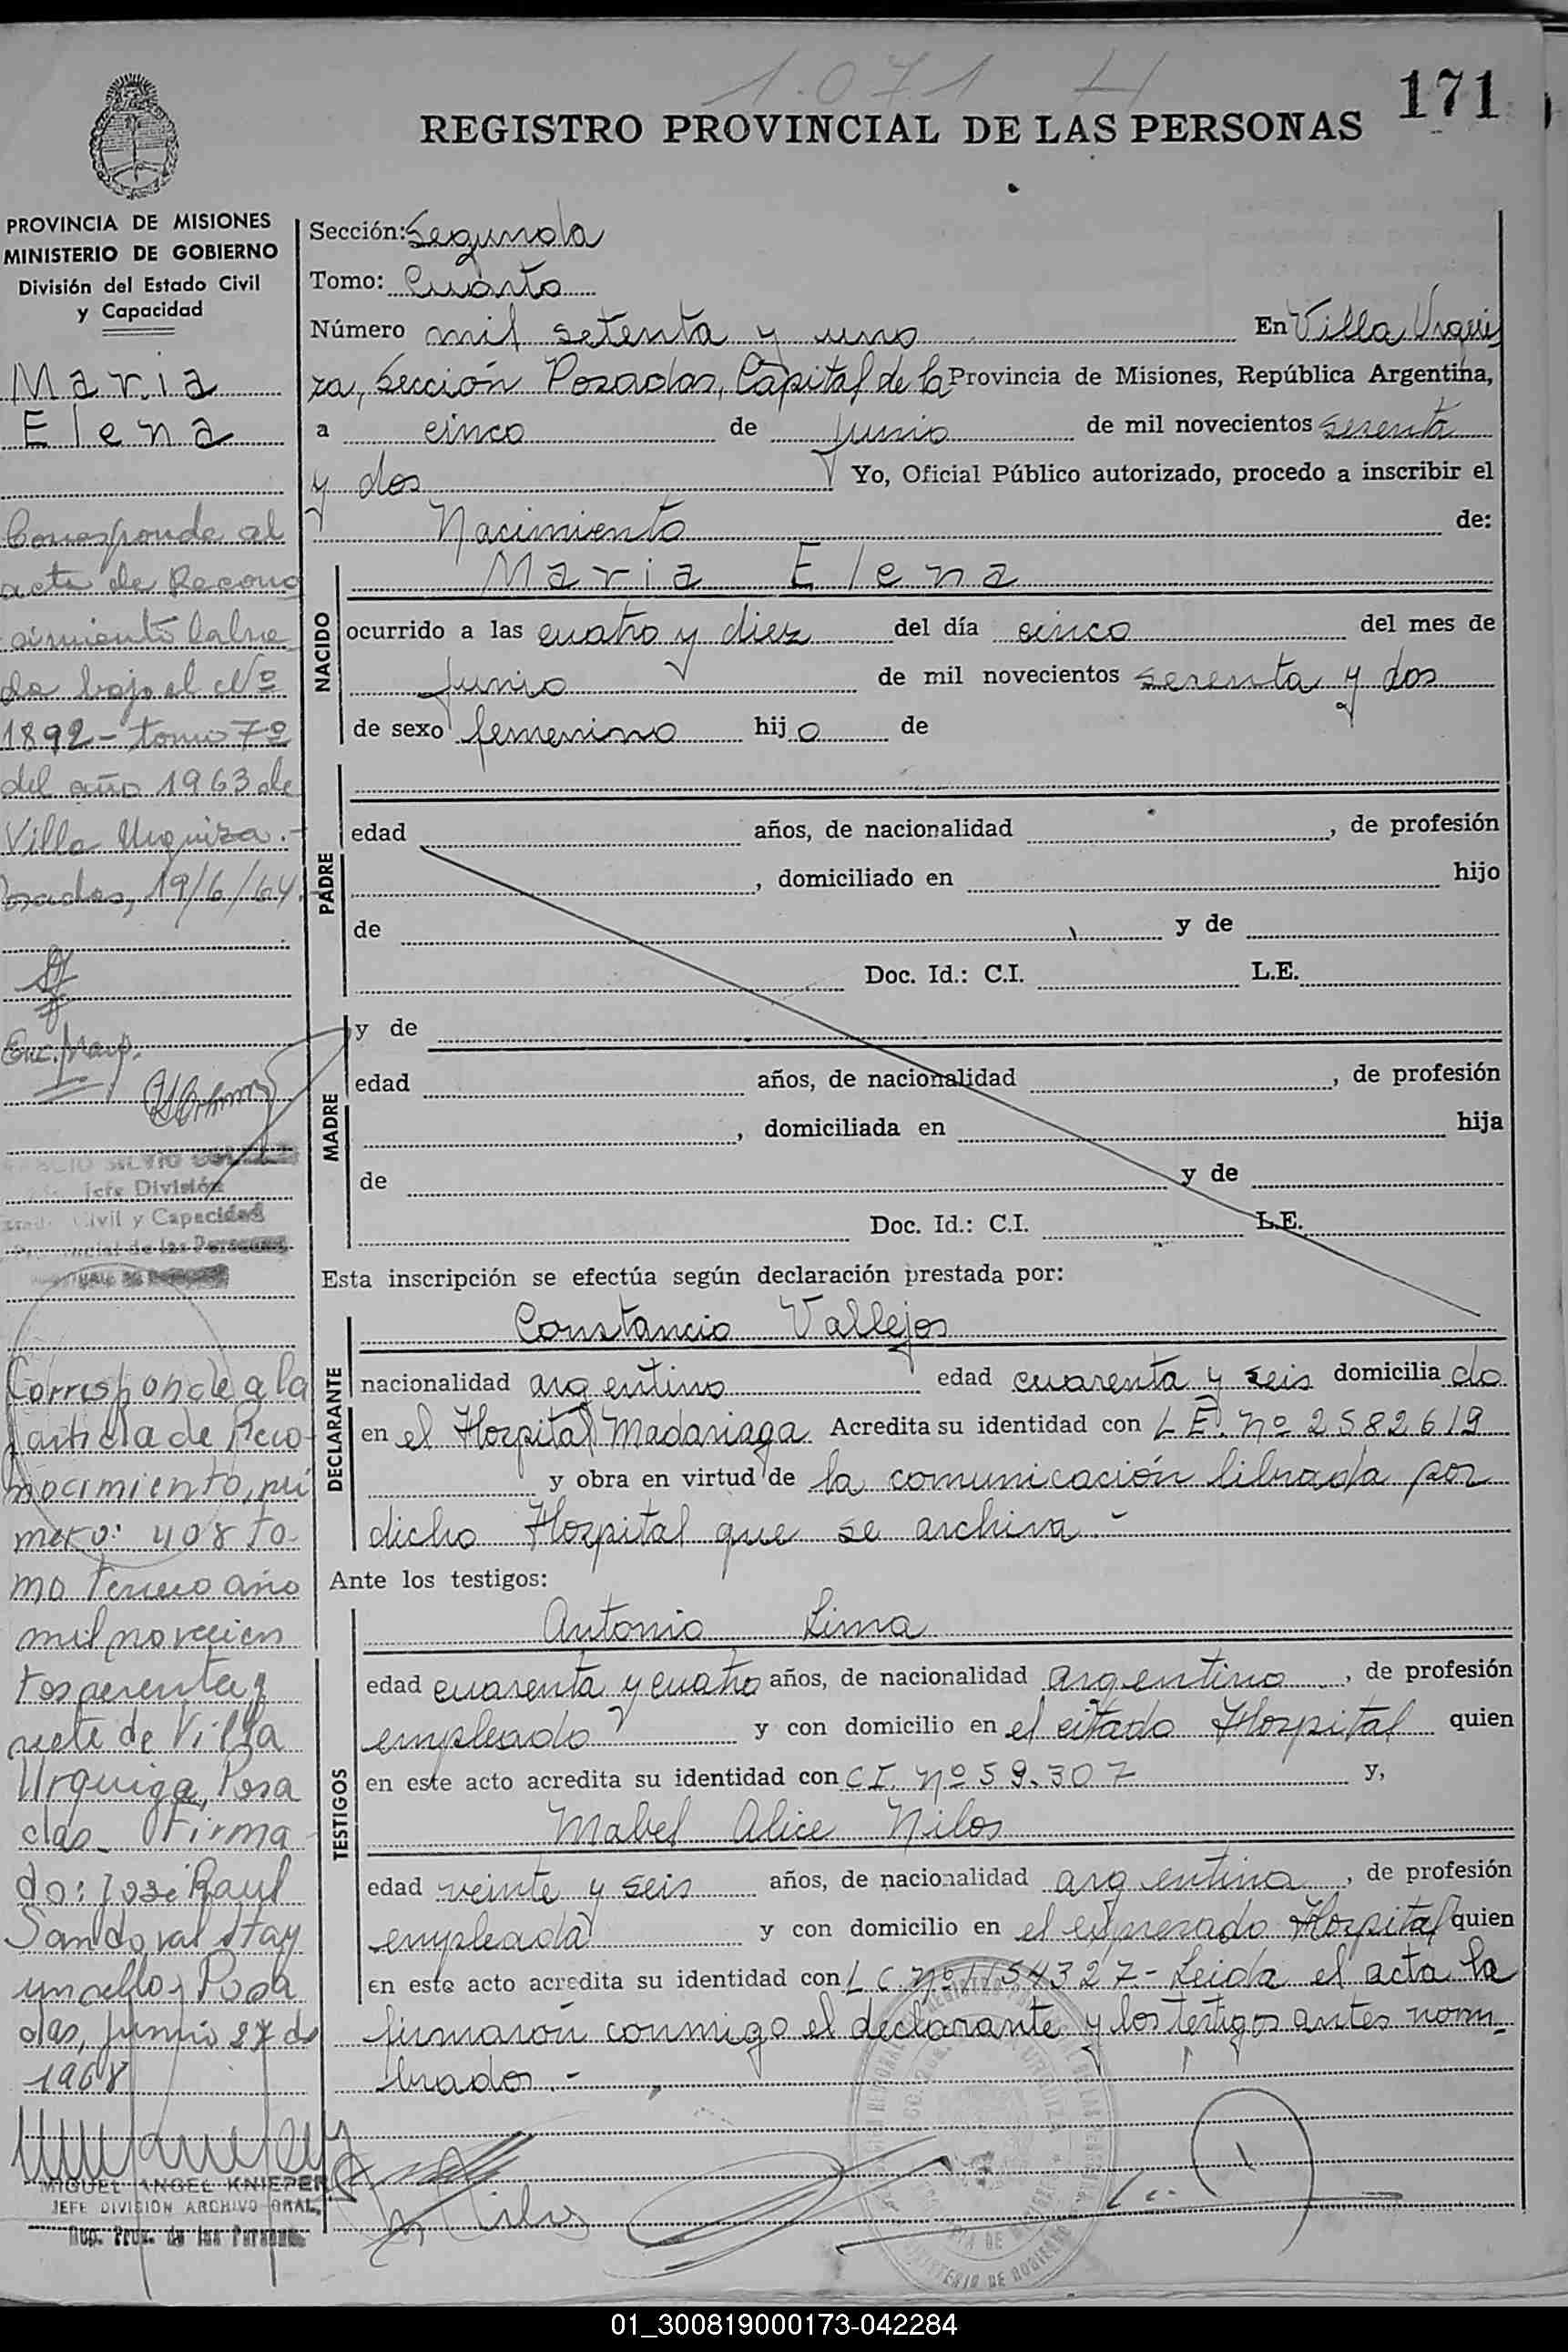 1.071 4
171
REGISTRO PROVINCIAL DE LAS PERSONAS
PROVINCIA DE MISIONES
MINISTERIO DE GOBIERNO
División del Estado Civil
y Capacidad
Maria
Elena
Corresponde al
acta de Recono
cimiento labra
da bajo el Nº
1892 - tomo 7º
del año 1963 de
Villa Urquiza.-
Posadas, 19/6/64.
Jefe División
Civil y Capacidad
Provincial de las Personas
Corresponde a la
Partida de Reco-
nocimiento, nú
mero: 408 to-
mo tercero año
mil novecien
tos sesenta y
siete de Villa
Urquiza, Posa
das_ Firma
do: José Raul
Sandoval Hay
un sello, Posa
das, junio 27 de
1968
MIGUEL ANGEL KNIEPER
JEFE DIVISION ARCHIVO GRAL.
Rep. Prov. de las Personas
Sección: Segunda
Tomo: Cuarto
Número mil setenta y uno En Villa Urqui
za, Sección Posadas, Capital de la Provincia de Misiones, República Argentina,
a cinco de junio de mil novecientos sesenta
y dos Yo, Oficial Público autorizado, procedo a inscribir el
Nacimiento de:
NACIDO
Maria Elena
ocurrido a las cuatro y diez del día cinco del mes de
junio de mil novecientos sesenta y dos
de sexo femenino hijo de
PADRE
edad años, de nacionalidad , de profesión
, domiciliado en hijo
de y de
Doc. Id.: C.I. L.E.
MADRE
y de
edad años, de nacionalidad , de profesión
, domiciliada en hija
de y de
Doc. Id.: C.I. L.E.
Esta inscripción se efectúa según declaración prestada por:
DECLARANTE
Constancio Vallejos
nacionalidad argentino edad cuarenta y seis domicilia do
en el Hospital Madariaga Acredita su identidad con L.E. Nº 2582619
y obra en virtud de la comunicación librada por
dicho Hospital que se archiva.-
Ante los testigos:
TESTIGOS
Antonio Lima
edad cuarenta y cuatro años, de nacionalidad argentino, de profesión
empleado y con domicilio en el citado Hospital quien
en este acto acredita su identidad con C.I. Nº 59.307 y,
Mabel Alice Nilos
edad veinte y seis años, de nacionalidad argentina, de profesión
empleada y con domicilio en el expresado Hospital quien
en este acto acredita su identidad con L.C. Nº 1154327- Leida el acta la
firmaron conmigo el declarante y los testigos antes nom-
brados.-
01_300819000173-042284